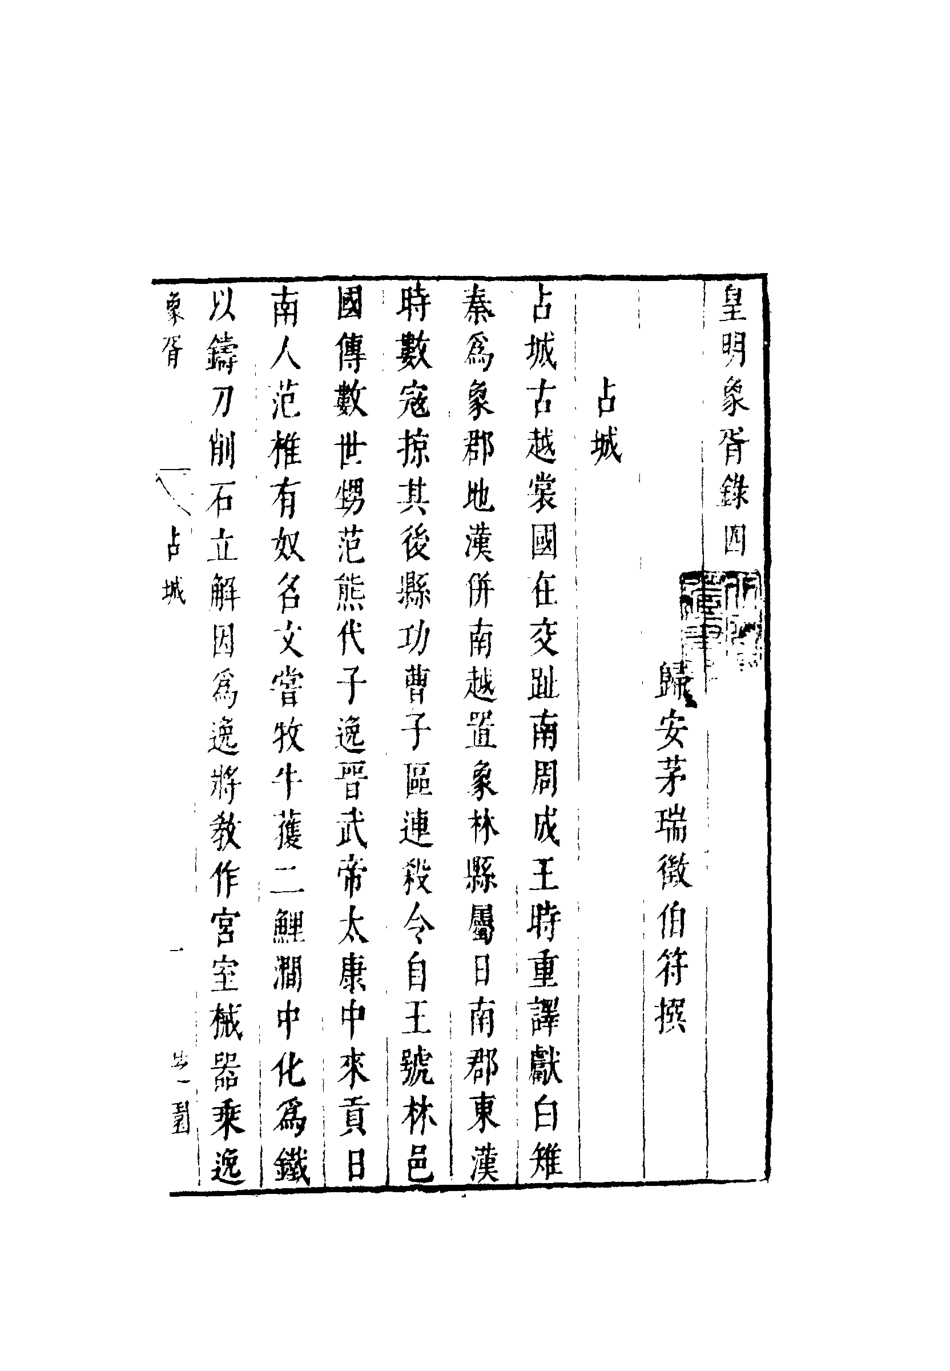 皇明象胥錄四
歸安茅瑞徵伯符撰
占城
占城古越裳國在交趾南周成王時重譯獻白雉
秦爲象郡地漢併南越置象林縣屬日南郡東漢
時數寇掠其後縣功曹子區連殺令自王號林邑
國傳數世甥范熊代子逸晉武帝太康中來貢日
南人范椎有奴名文嘗牧牛獲二鯉澗中化爲鐵
以鑄刀削石立解因爲逸將教作宮室械器乘逸
象胥 占城 一